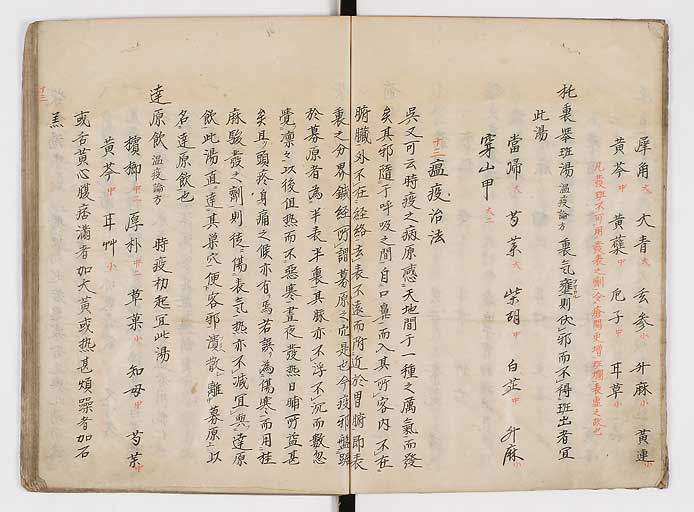 犀角大 大青大 玄参小 升麻小 黄連小
黄芩中 黄蘗中 巵子中 耳草小
凡發斑不可用發表之劑令瘡開更増斑爛表虚之故也
托裏挙斑湯 温疫論方 裏气壅則伏邪而不得斑出者宜
此湯
當帰大 芍薬大 柴胡中 白芷中 升麻小
穿山甲大二
十二瘟疫治法
呉又可云時疫之病原感天地間于一種之厲氣而發
矣其邪隨于呼吸之間自口鼻而入其所客内不在
腑臓外不在経絡去表不遠而附近於胃腑即表
裏之分界鍼経所謂募原之宛是也今疫邪盤踞
於募原者為半表半裏其脉亦不浮不沉而數忽
覺凛々以後但热而不惡寒晝夜發热日晡所益甚
矣且頭疼身痛之候亦有焉若誤為傷寒而用桂
麻駿發之劑則徒傷表气热亦不減宜與達原
飲此湯直達其巣穴便客邪潰散離募原以
名達原飲也
達原飲 温疫論方 時疫初起宜此湯
檳榔中二 厚朴中二 草菓小 知母中 芍薬中
黄芩中 耳艸小
或舌黄心腹痞満者加大黄或热甚煩躁者加石
羔
十三